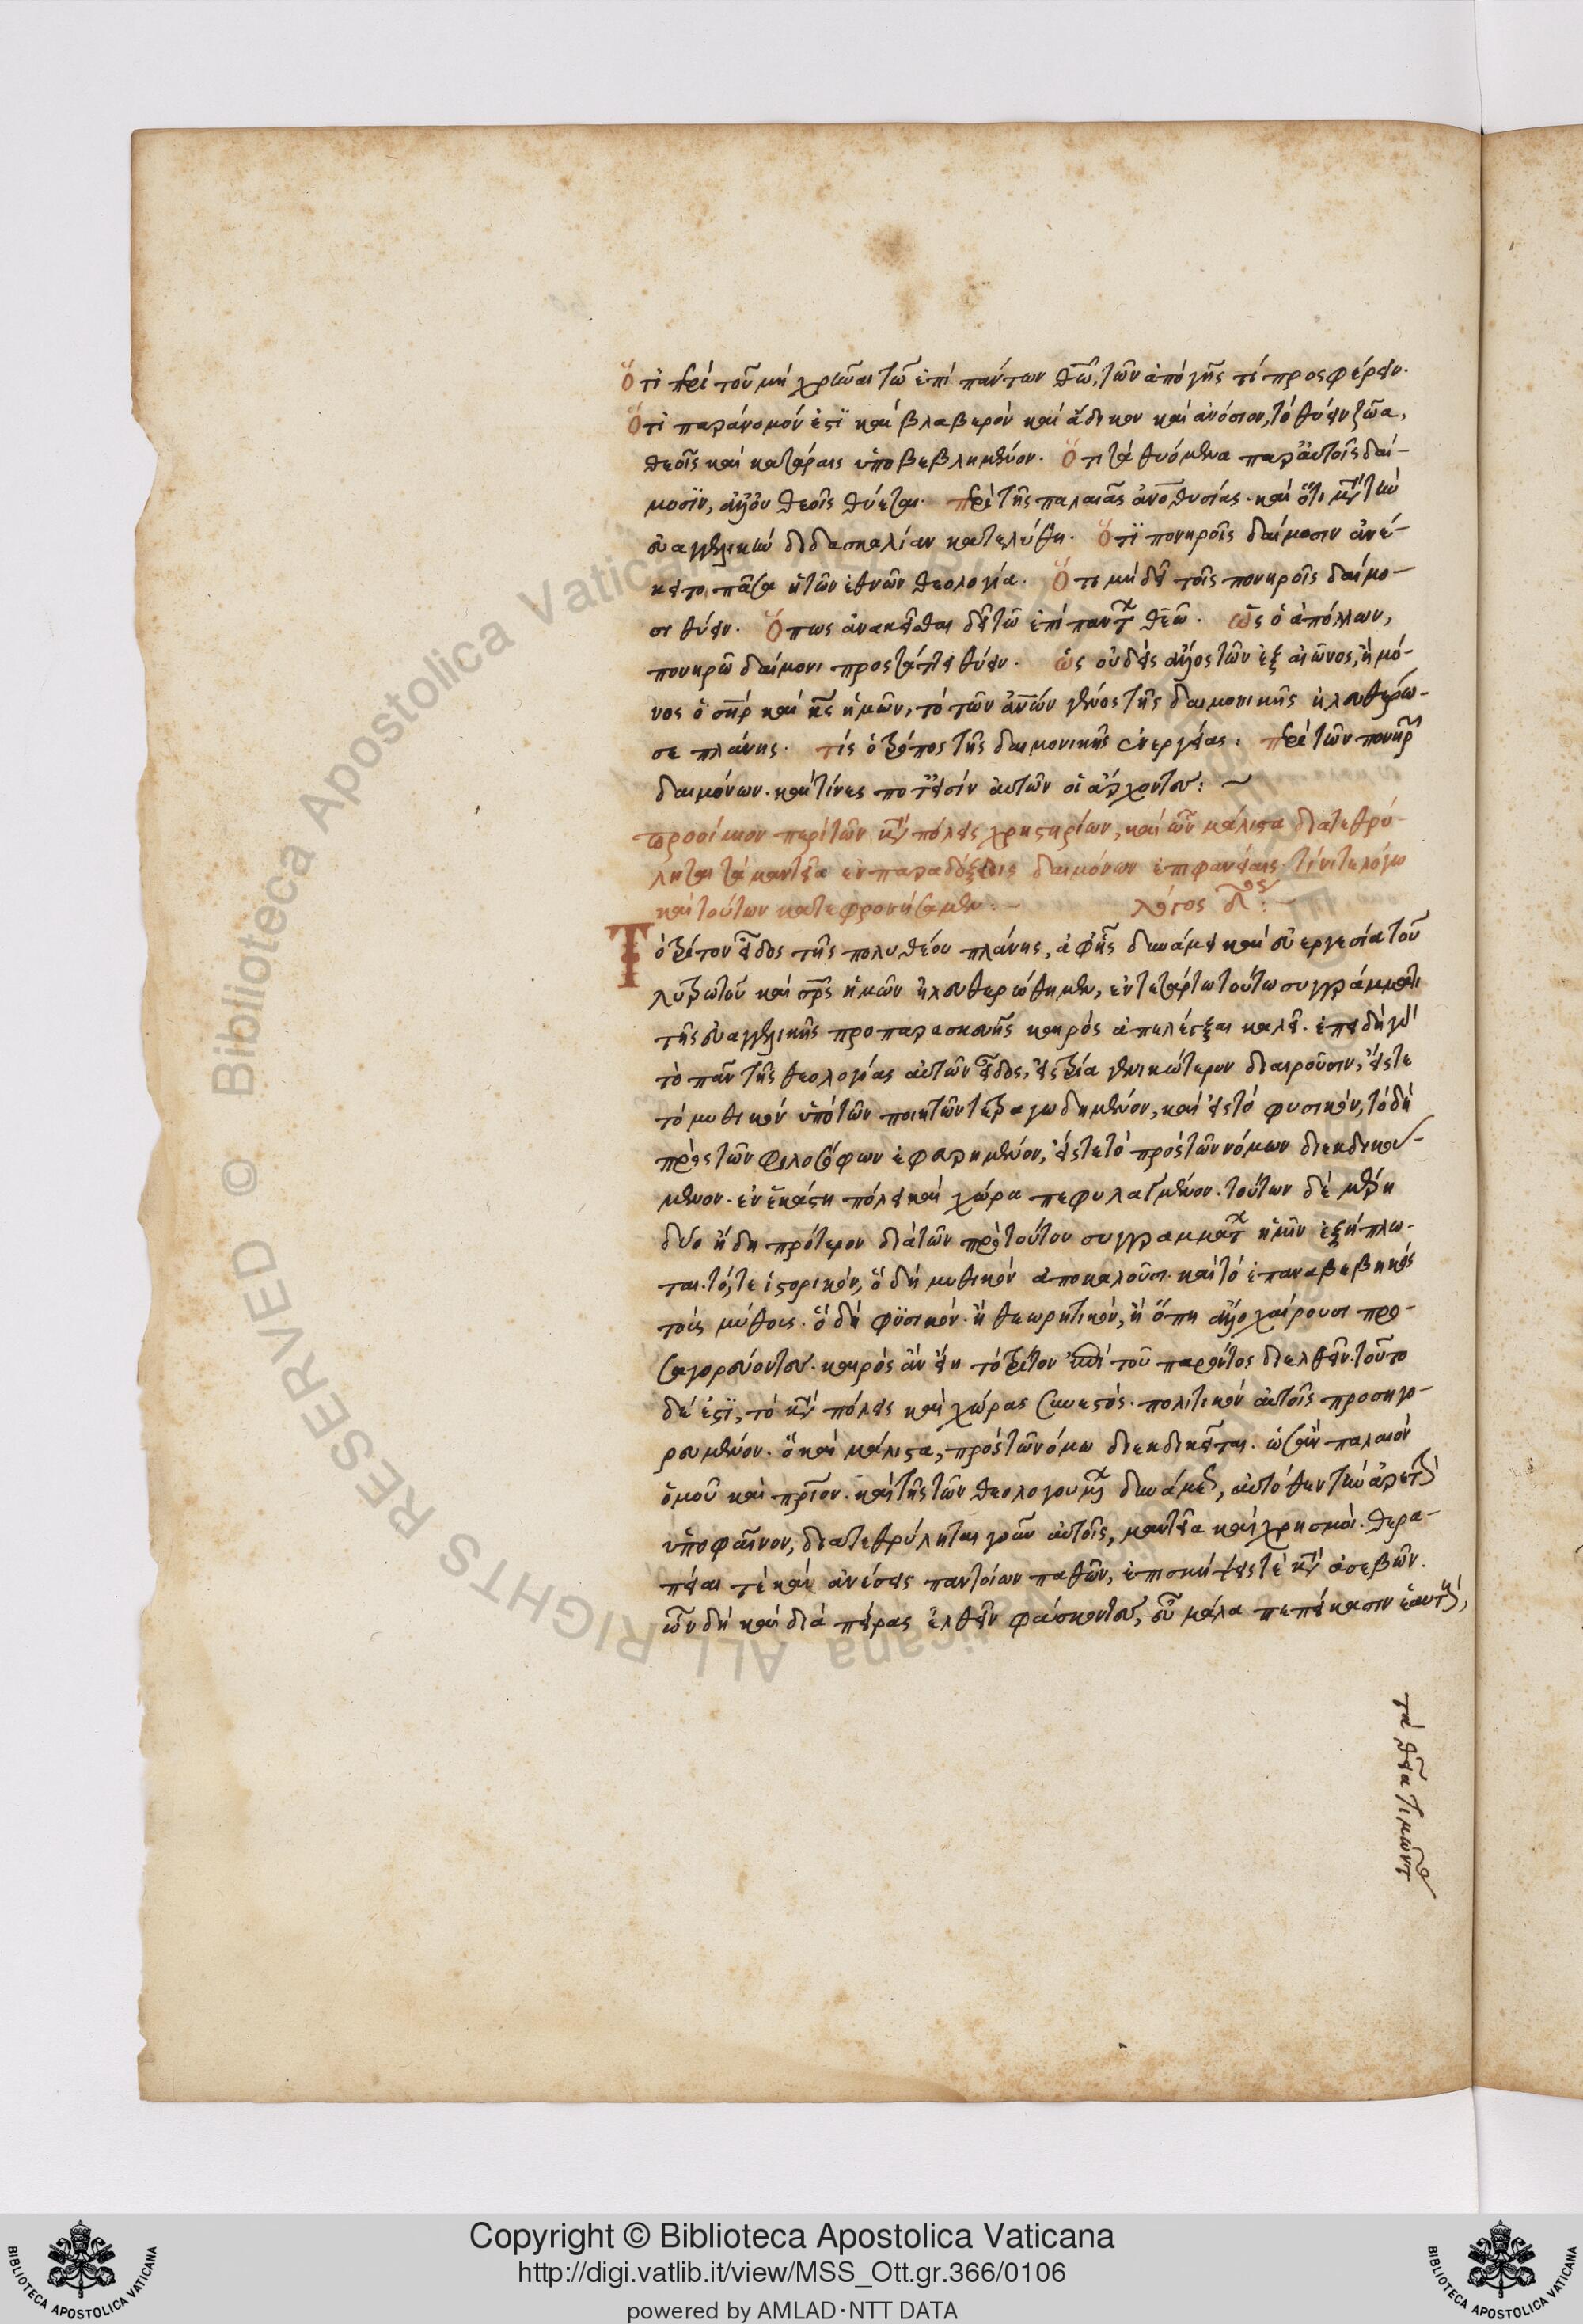 Ὅτι περὶ τοῦ μὴ χρῆναι τῶ ἐπὶ πάντων θεῶ, τῶν ἀπὸ γῆς τί προσφέρειν.
Ὅτι παράνομόν ἐστι καὶ βλαβερὸν καὶ ἄδικον καὶ ἀνόσιον, τὸ θύειν ζῶα,
θεοῖς καὶ κατάραις ὑποβεβλημένον. Ὅτι τὰ θυόμενα παρ' αὐτοῖς δαί-
μοσιν, ἀλλ' οὐ θεοῖς θύεται. περὶ τῆς παλαιᾶς ἀνθρωποθυσίας. καὶ ὅτι μετὰ τὴν
εὐαγγελικὴν διδασκαλίαν κατελύθη. Ὅτι πονηροῖς δαίμοσιν ἀνέ-
κειτο πᾶσα ἡ τῶν ἐθνῶν θεολογία. Ὅτι μὴ δεῖ τοῖς πονηροῖς δαίμο-
σι θύειν. Ὅπως ἀνακεῖσθαι δεῖ τῶ ἐπὶ πάντων θεῶ. ὡς ὁ ἀπόλλων,
πονηρῶ δαίμονι προστάττει θύειν. ὡς οὐδεὶς ἄλλος τῶν ἐξ αἰῶνος, ἢ μό-
νος ὁ σωτὴρ καὶ κύριος ἡμῶν, τὸ τῶν ἀνθρώπων γένος τῆς δαιμονικῆς ἠλευθέρω-
σε πλάνης. τίς ὁ τρόπος τῆς δαιμονικῆς ἐνεργείας: περὶ τῶν πονηρῶν
δαιμόνων. καὶ τίνες ποτ' εἰσὶν αὐτῶν οἱ ἄρχοντες:
προοίμιον περὶ τῶν κατὰ πόλεις χρηστηρίων, καὶ ὧν μάλιστα διατεθρύ-
ληται τὰ μαντεῖα ἐν παραδόξοις δαιμόνων ἐπιφανείαις. τίνι τε λόγω
καὶ τούτων κατεφρονήσαμεν. λόγος δος:
Τὸ τρίτον εἶδος τῆς πολυθέου πλάνης, ἀφ' ἧς δυνάμει καὶ εὐεργεσία τοῦ
λυτρωτοῦ καὶ σωτῆρος ἡμῶν ἠλευθερώθημεν, ἐν τετάρτω τούτω συγγράμματι
τῆς εὐαγγελικῆς προπαρασκευῆς καιρὸς ἀπελέγξαι καλεῖ. ἐπειδὴ γὰρ
τὸ πᾶν τῆς θεολογίας αὐτῶν εἶδος, εἰς τρία γενικώτερον διαιροῦσιν, εἴς τε
τὸ μυθικὸν ὑπὸ τῶν ποιητῶν τετραγωδημένον, καὶ εἰς τὸ φυσικὸν, τὸ δὴ
πρὸς τῶν φιλοσόφων ἐφευρημένον, εἴς τε τὸ πρὸς τῶν νόμων διεκδικού-
μενον. ἐν ἑκάστη πόλει καὶ χώρα πεφυλαγμένον. τούτων δὲ μέρη
δύο ἤδη πρότερον διὰ τῶν πρὸ τούτου συγγραμμάτων ἡμῖν ἐξήπλω-
ται. τό, τε ἱστορικόν, ὃ δὴ μυθικὸν ἀποκαλοῦσι. καὶ τὸ ἐπαναβεβηκὸς
τοὺς μύθους. ὃ δὴ φυσικόν. ἢ θεωρητικόν, ἢ ὅπη ἄλλο χαίρουσι προ-
σαγορεύοντες. καιρὸς ἂν εἴη τὸ τρίτον ἐπὶ τοῦ παρόντος διελθεῖν. τοῦτο
δέ ἐστι, τὸ κατὰ πόλεις καὶ χώρας συνεστός. πολιτικὸν αὐτοῖς προσηγο-
ρευμένον. ὃ καὶ μάλιστα, πρὸς τῶν νόμω διεκδικεῖται. ὡσὰν παλαιὸν
ὁμοῦ καὶ πάτριον. καὶ τῆς τῶν θεολογουμένων δυνάμεως, αὐτόθεν τὴν ἀρετὴν
ὑποφαῖνον, διατεθρύληται γοῦν αὐτοῖς, μαντεῖα καὶ χρησμοί. θερα-
πεῖαί τε καὶ ἀνέσεις παντοίων παθῶν, ἐπισκήψεις τε κατὰ ἀσεβῶν.
ὧν δὴ καὶ διὰ πείρας ἐλθεῖν φάσκοντες, εὖ μάλα πεπείκασιν ἑαυτοὺς,
τὰ θεῖα τιμῶντας
Copyright © Biblioteca Apostolica Vaticana
http://digi.vatlib.it/view/MSS_Ott.gr.366/0106
powered by AMLAD·NTT DATA